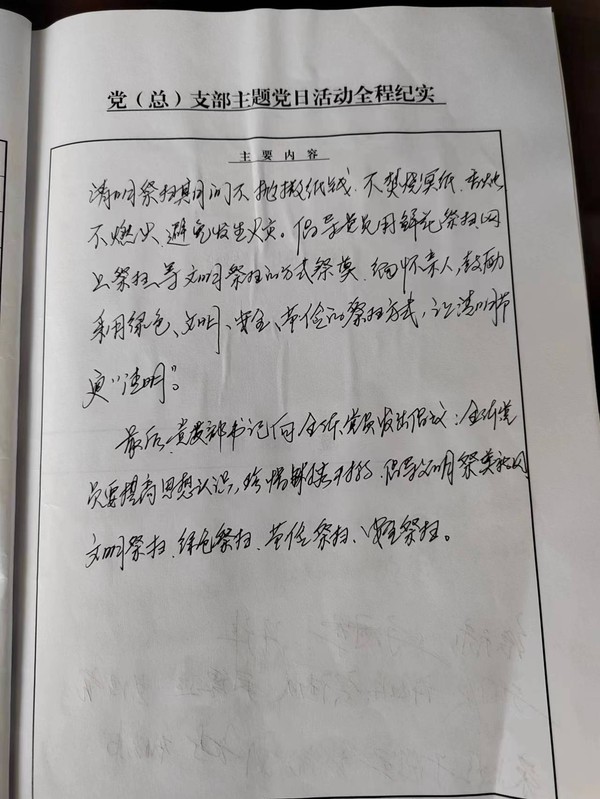 党（总）支部主题党日活动全程纪实
主要内容
清明祭扫期间不抛撒纸钱、不焚烧冥纸、香烛
不燃火、避免发生火灾。倡导党员用鲜花祭扫、网
上祭扫等文明祭扫的方式祭奠、缅怀亲人，鼓励
采用绿色、文明、安全、节俭的祭扫方式，让清明节
更“清明”。
最后，党支部书记向全体党员发出倡议：全体党
员要提高思想认识，倡导文明祭奠
文明祭扫、绿色祭扫、节俭祭扫、安全祭扫。